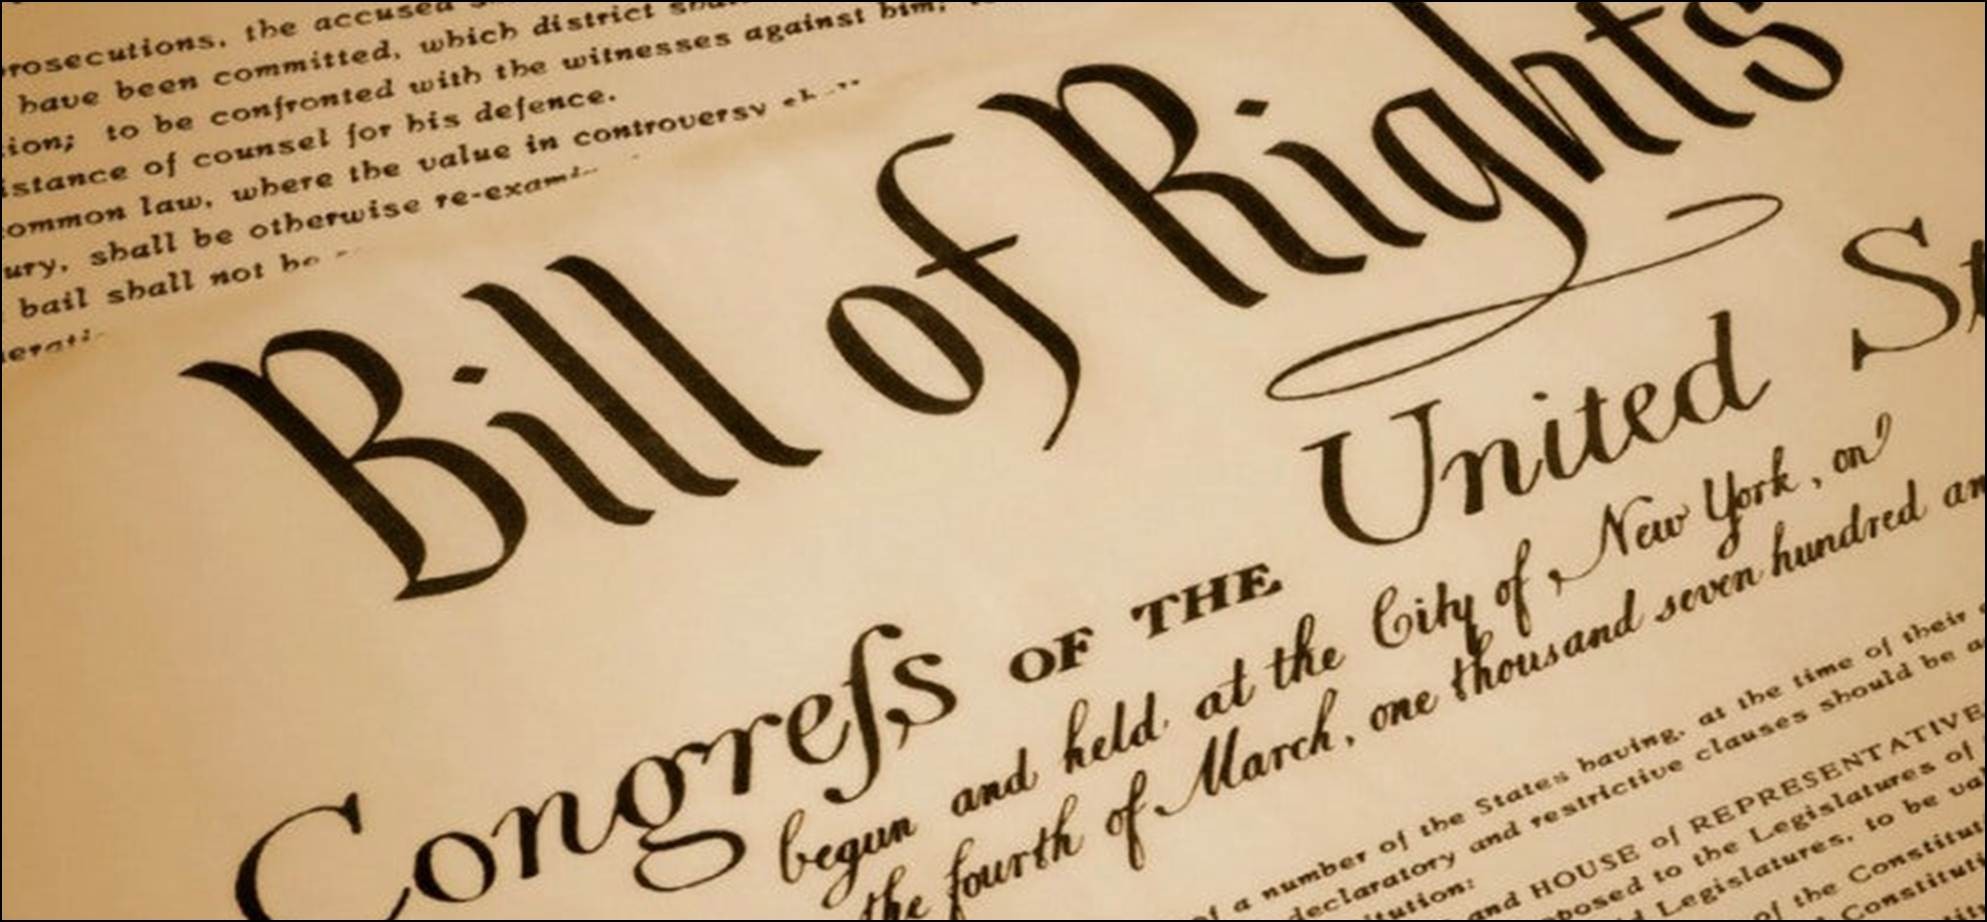 prosecutions, the accused
have been committed, which district
tion; to be confronted with the witnesses against him;
istance of counsel for his defence.
ommon law, where the value in controversy
ury, shall be otherwise re-exami
bail shall not be
erati
Bill of Rights
Congreſs OF THE United St
begun and held at the City of New York, on
the fourth of March, one thousand seven hundred an
of a number of the States having, at the time of their
declaratory and restrictive clauses should be a
itution:
and HOUSE of REPRESENTATIVE
posed to the Legislatures of
d Legislatures, to be va
of the Constitut
Constituti